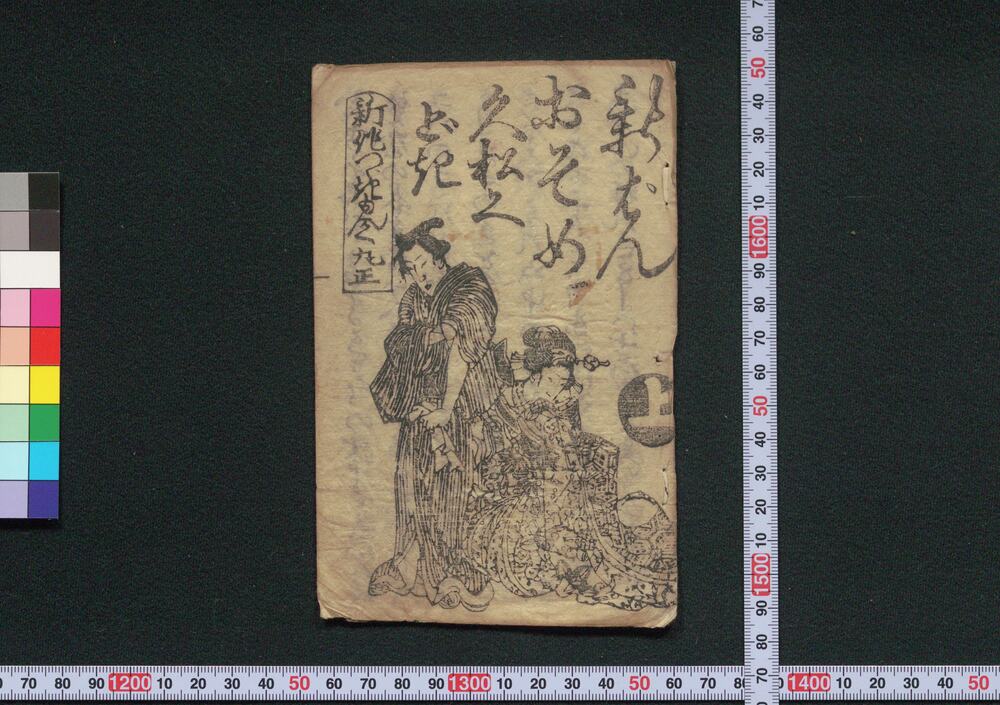 新はん
おそめ
久松く
どき
上
新地つき
丸正
50
60
50
40
30
20
10
1600
90
80
70
60
50
40
30
20
10
1500
90
80
70
70
80
90
1200
10
20
30
40
50
60
70
80
90
1300
10
20
30
40
50
60
70
80
1400
10
20
30
40
50